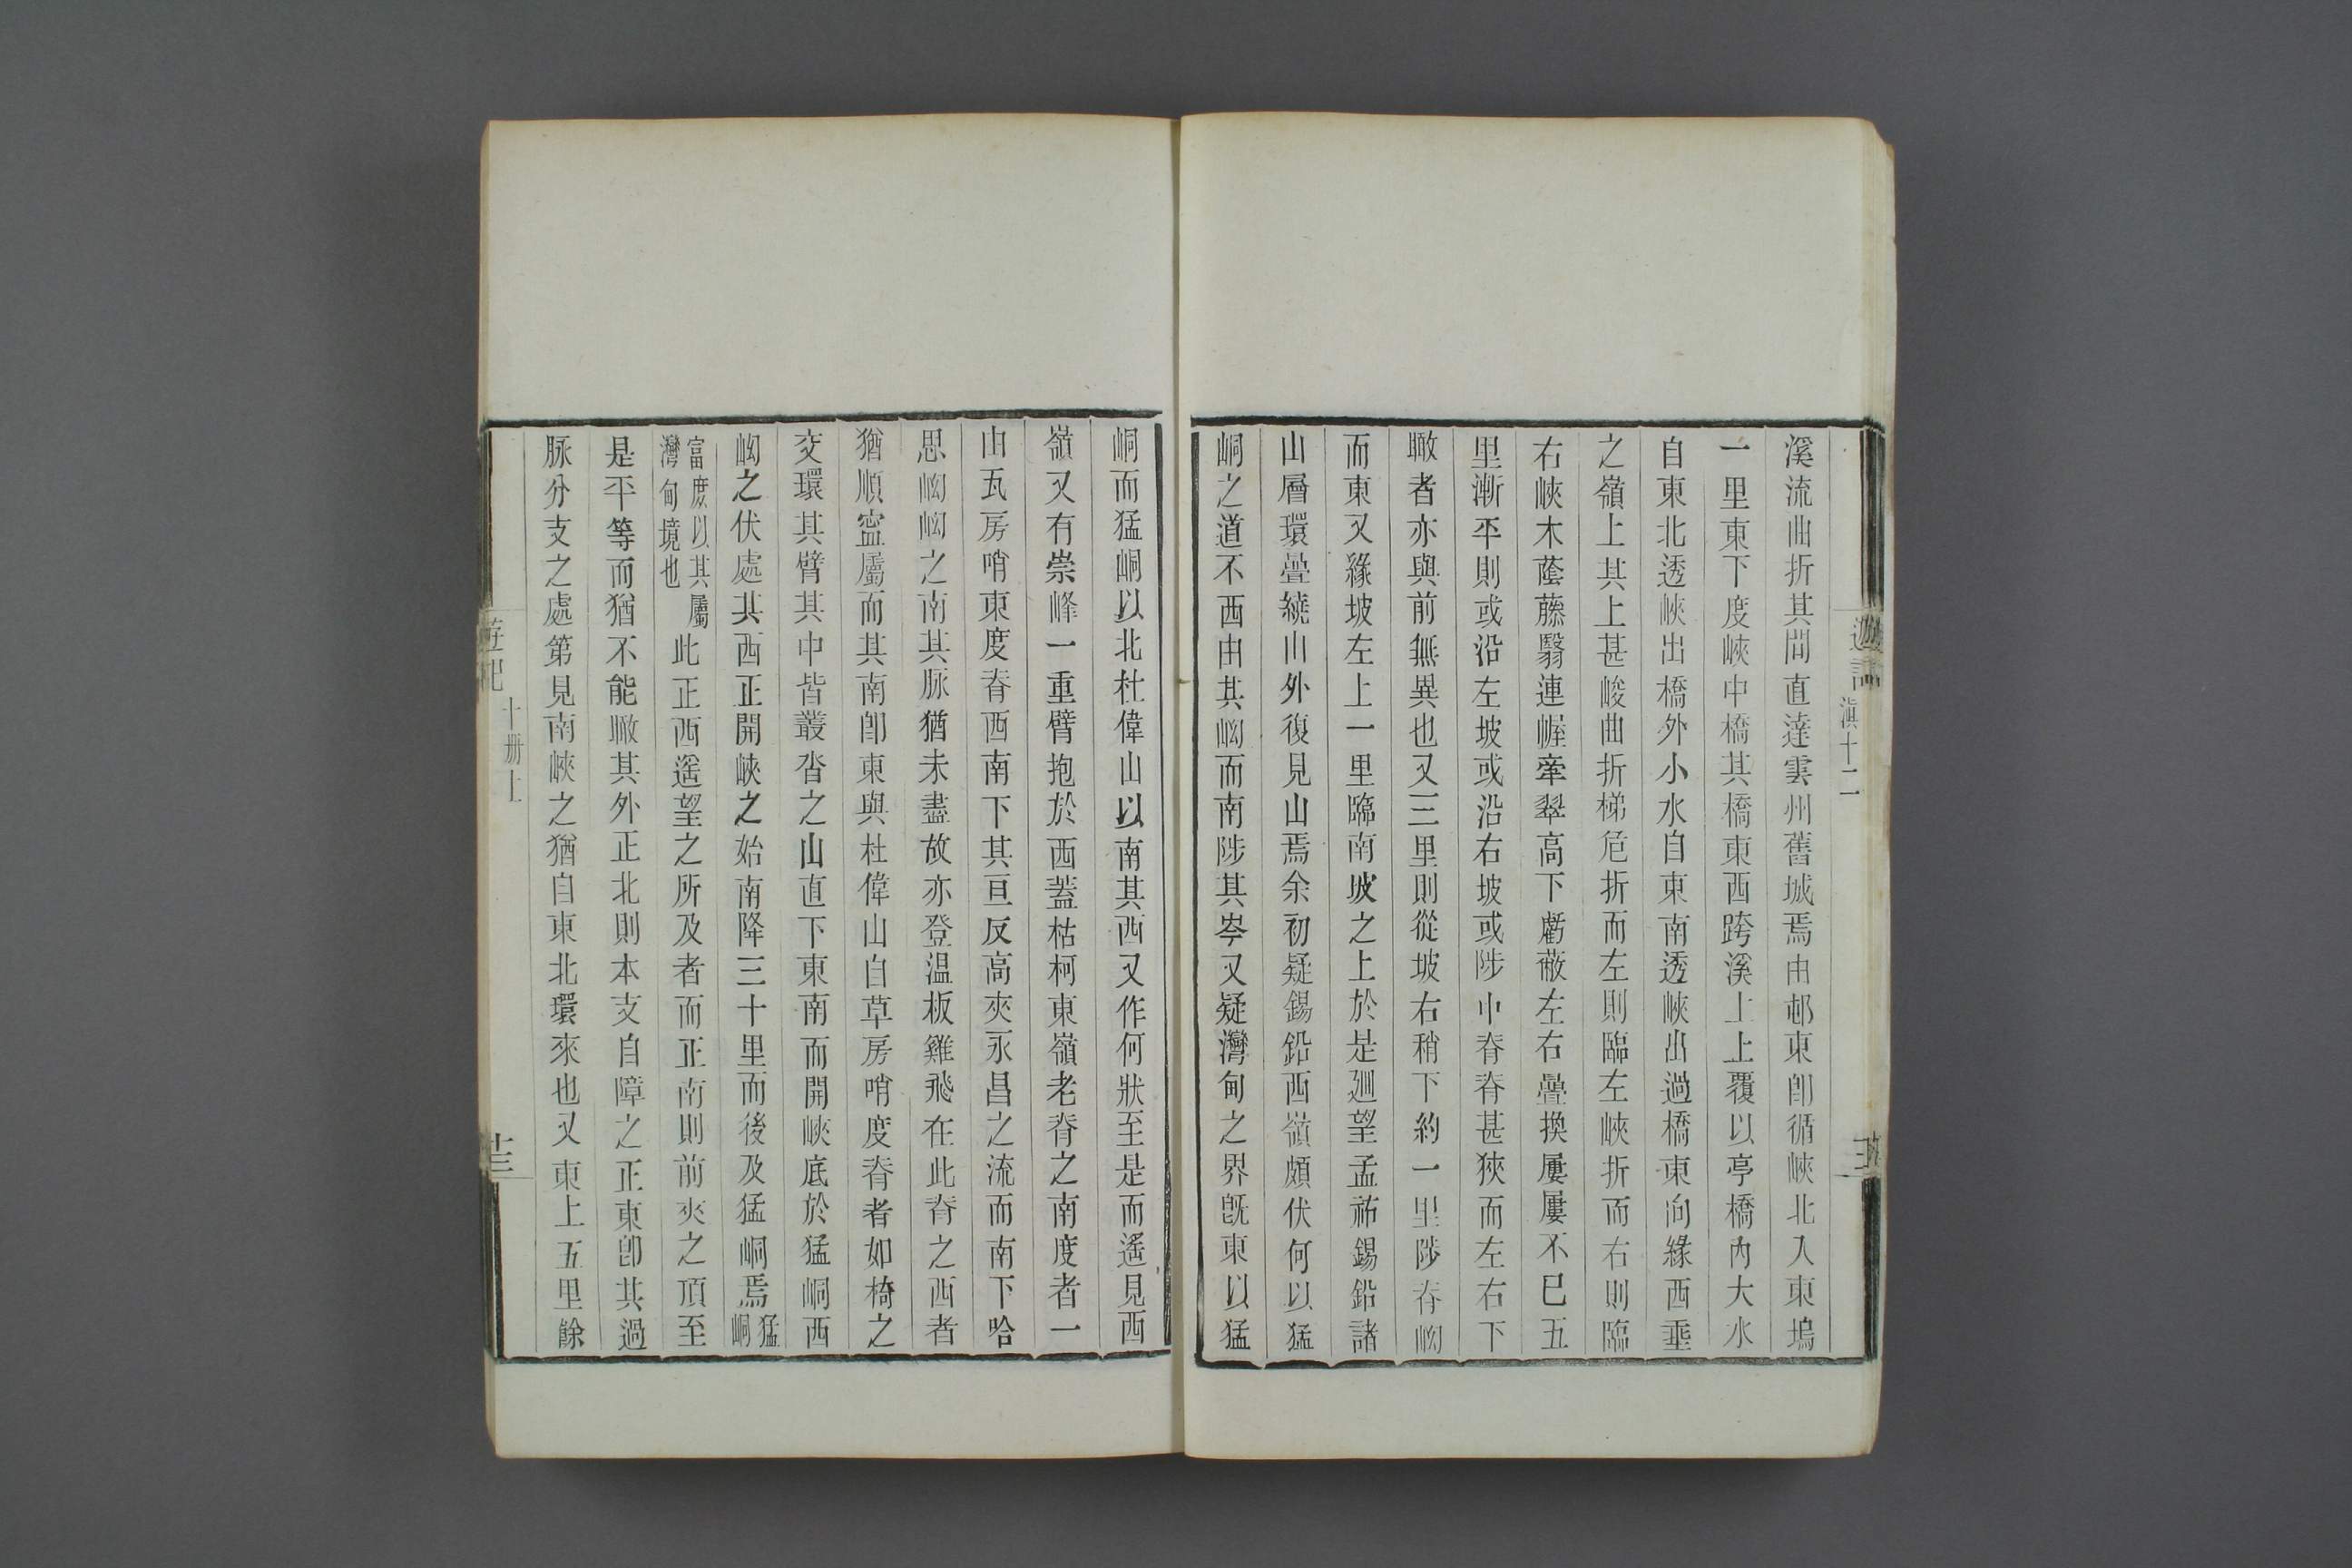 滇十二
溪流曲折其間直達雲州舊城焉由邨東卽循峽北入東塢
一里東下度峽中橋其橋東西跨溪上上覆以亭橋內大水
自東北透峽出橋外小水自東南透峽出過橋東向緣西垂
之嶺上其上甚峻曲折梯危折而左則臨左峽折而右則臨
右峽木蔭藤翳連幄牽翠高下虧蔽左右疊換屢屢不已五
里漸平則或沿左坡或沿右坡或陟中脊脊甚狹而左右下
瞰者亦與前無異也又三里則從坡右稍下約一里陟脊坳
而東又緣坡左上一里臨南坡之上於是廻望孟祐錫鉛諸
山層環疊繞山外復見山焉余初疑錫鉛西嶺頗伏何以猛
峒之道不西由其坳而南陟其岺又疑灣甸之界旣東以猛
峒而猛峒以北杜偉山以南其西又作何狀至是而遙見西
嶺又有崇峰一重臂抱於西蓋枯柯東嶺老脊之南度者一
由瓦房哨東度脊西南下其亘反高夾永昌之流而南下哈
思坳坳之南其脈猶未盡故亦登溫板雞飛在此脊之西者
猶順寍屬而其南卽東與杜偉山自草房哨度脊者如椅之
交環其臂其中皆叢沓之山直下東南而開峽底於猛峒西
坳之伏處其西正開峽之始南降三十里而後及猛峒焉猛
峒
富庶以其屬
灣甸境也
此正西遙望之所及者而正南則前夾之頂至
是平等而猶不能瞰其外正北則本支自障之正東卽其過
脈分支之處第見南峽之猶自東北環來也又東上五里餘
遊記
十册上
十三